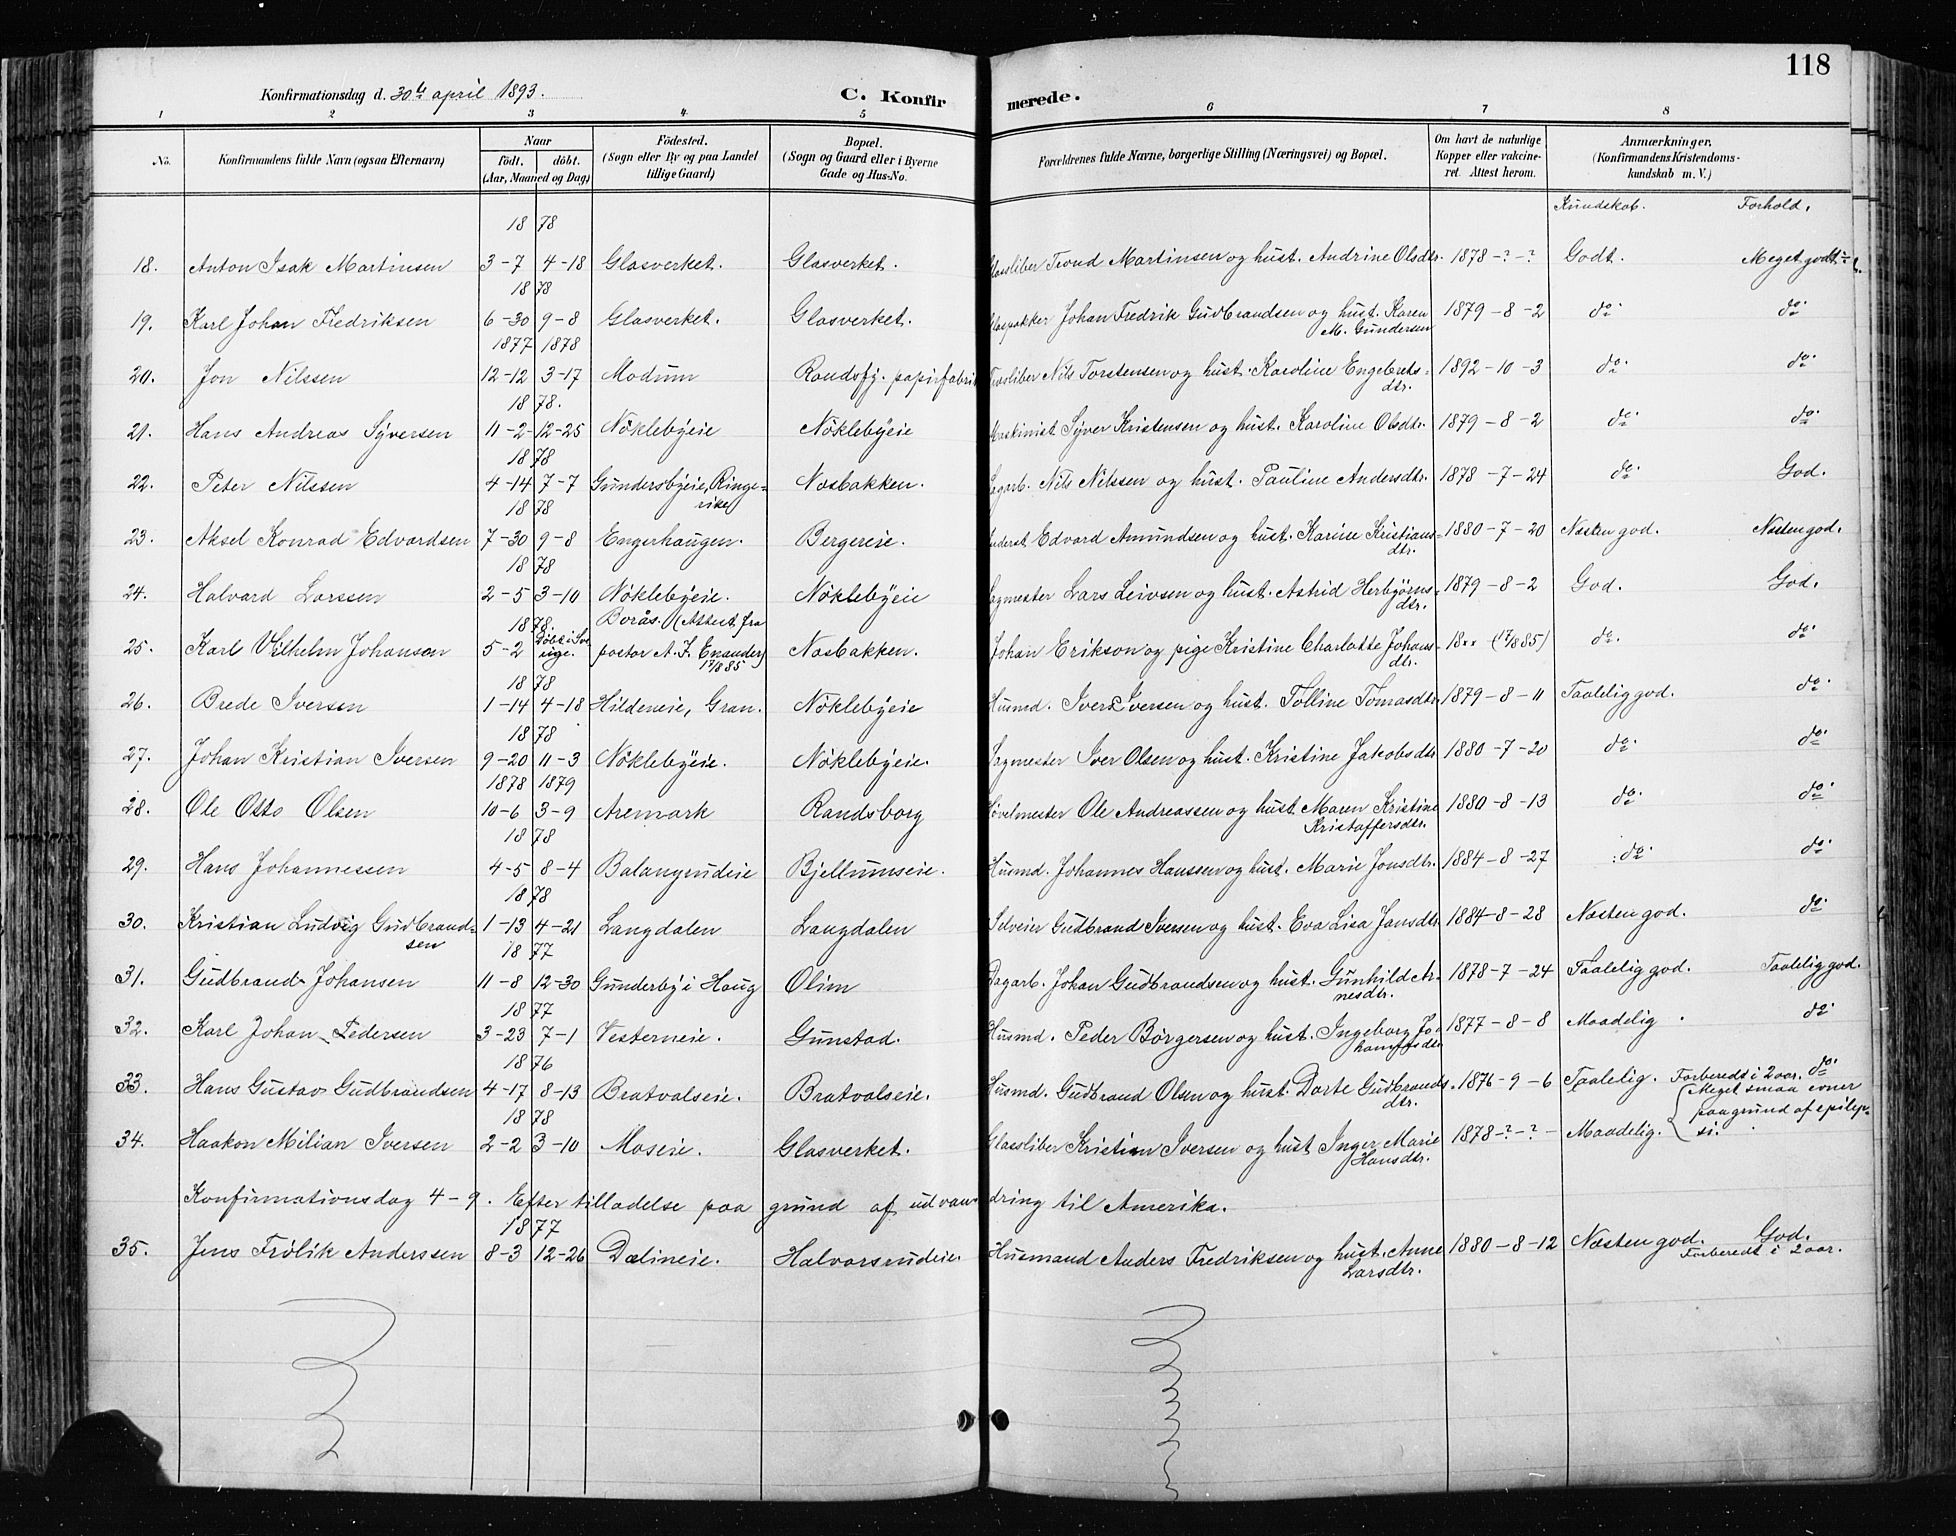 118
Konfirmationsdag d. 30te april 1893. C. Konfirmerede.
1 2 3 4 5 6 7 8
No. Konfirmandens fulde Navn (ogsaa Efternavn) Naar födt. döbt. (Aar, Maaned og Dag) Födested. (Sogn eller By og paa Landet tillige Gaard) Bopæl. (Sogn og Gaard eller i Byerne Gade og Hus-No. Forældrenes fulde Navne, borgerlige Stilling (Næringsvei) og Bopæl. Om havt de naturlige Kopper eller vakcineret. Attest herom. Anmærkninger. (Konfirmandens Kristendomskundskab m. V.)
Kundskab. Forhold.
1878
18. Anton Isak Martinsen 3-7 4-18 Glasverket. Glasverket. Glassliber Trond Martinsen og hust. Andrine Olsdtr. 1878-?-? Godt. Meget godt
1878
19. Karl Johan Fredriksen 6-30 9-8 Glasverket. Glasverket. Glaspakker Johan Fredrik Gudbrandsen og hust. Karen M. Gundersen 1879-8-2 do. do.
1877 1878
20. Jon Nilssen 12-12 3-17 Modum Randsfj. papirfabrik Træsliber Nils Torstensen og hust. Karoline Engebrets=dtr. 1892-10-3 do. do.
1878.
21. Hans Andreas Syversen 11-2 12-25 Nöklebyeie Nöklebyeie Maskinist Syver Kristensen og hust. Karoline Olsdtr. 1879-8-2 do. do.
1878
22. Peter Nilssen 4-14 7-7 Gundersbyeie, Ringe=rike Næsbakken. Dagarb. Nils Nilssen og hust. Pauline Andersdtr. 1878-7-24 do. God.
1878
23. Aksel Konrad Edvardsen 7-30 9-8 Engerhaugen. Bergereie. Inderst Edvard Amundsen og hust. Karine Kristians=dtr. 1880-7-20 Næsten god. Næsten god.
1878
24. Halvard Larssen 2-5 3-10 Nöklebyeie. Nöklebyeie Sagmester Lars Leivsen og hust. Astrid Herbjörns=dtr. 1879-8-2 God. God.
1878.
25. Karl Vilhelm Johansen 5-2 Döbt i Sverige. Borås. (Attest fra pastor A. F. Enander) 17/8 85 Næsbakken. Johan Erikson og pige Kristine Charlotte Johans=dtr. 18xx (17/8 85) do. do.
1878
26. Brede Iversen 1-14 4-18 Hildeneie, Gran. Nöklebyeie Husmd. Iver Iversen og hust. Tolline Tomasdtr. 1879-8-11 Taalelig god. do.
1878
27. Johan Kristian Iversen 9-20 11-3 Nöklebyeie. Nöklebyeie. Sagmester Iver Olsen og hust. Kristine Jakobsdtr. 1880-7-20 do. do.
1878 1879
28. Ole Otto Olsen 10-6 3-9 Aremark Randsborg Hövelmester Ole Andreassen og hust. Maren Kristine Kristoffersdtr. 1880-8-13 do. do.
1878
29. Hans Johannessen 4-5 8-4 Balangrudeie Bjellumseie. Husmd. Johannes Hanssen og hust. Marie Jonsdtr. 1884-8-27 do. do.
1878
30. Kristian Ludvig Gudbrand=sen 1-13 4-21 Langdalen Langdalen Selveier Gudbrand Iversen og hust. Eva Lisa Jansdtr. 1884-8-28 Næsten god. do.
1877
31. Gudbrand Johansen 11-8 12-30 Gunderby i Haug Olim Dagarb. Johan Gudbrandsen og hust. Gunhild Ar=nesdtr. 1878-7-24 Taalelig god. Taalelig god.
1877
32. Karl Johan Pedersen 3-23 7-1 Vesterneie. Gunstad. Husmd. Peder Börgersen og hust. Ingeborg Jo=hannesdtr 1877-8-8 Maadelig. do
1876
33. Hans Gustav Gudbrandsen 4-17 8-13 Bratvalseie. Bratvalseie. Husmd. Gudbrand Olsen og hust. Dorte Gudbrands=dtr. 1876-9-6 Taalelig. Forberedt i 2 aar. do.
1878
34. Haakon Milian Iversen 2-2 3-10 Moseie. Glasverket. Glassliber Kristian Iversen og hust Inger Marie Hansdtr. 1878-?-? Maadelig. Meget smaa evner paa grund af epilepsi.
Konfirmationsdag 4-9. Efter tilladelse paa grund af udvandring til Amerika.
1877
35. Jens Frölik Anderssen 8-3 12-26 Dælineie. Halvorsrudeie. Husmand Anders Fredriksen og hust. Anne Larsdtr. 1880-8-12 Næsten god. God. Forberedt i 2 aar.